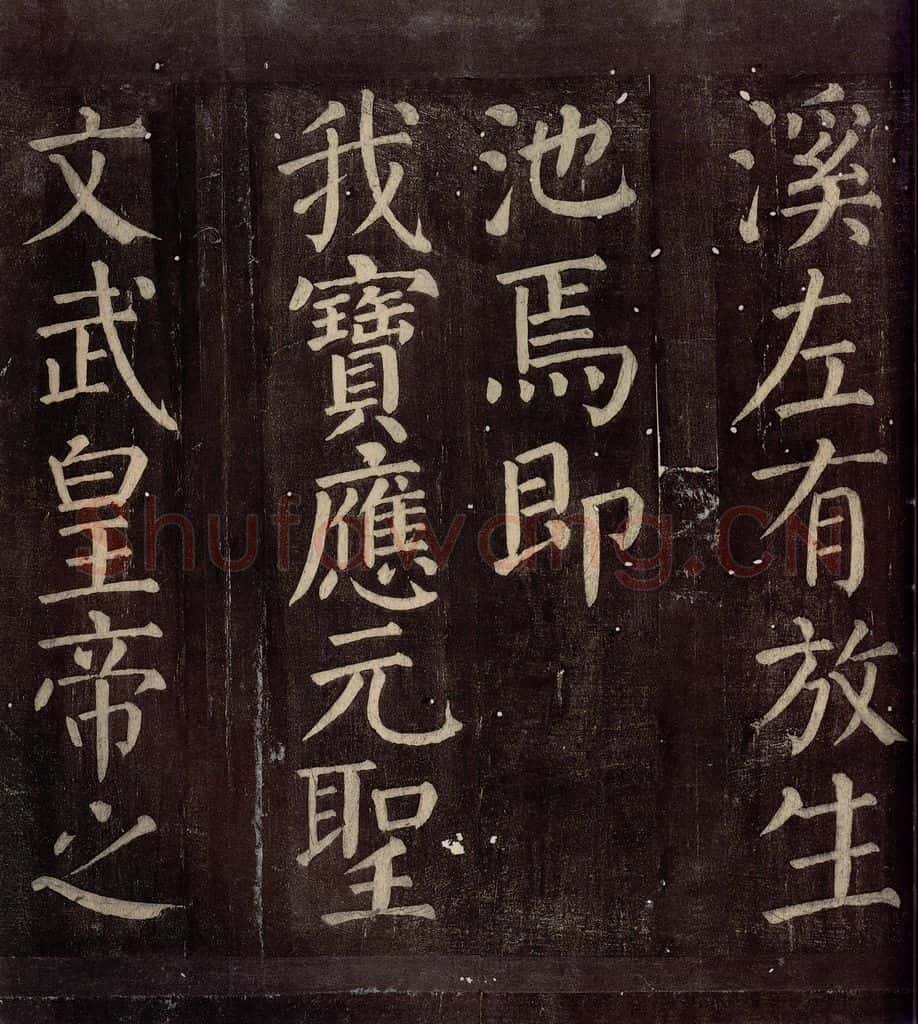 溪左有放生
池焉即
我寶應元聖
文武皇帝之
Shufawang.CN